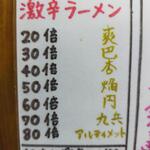 激辛ラーメン
20倍 爽
30倍 巴
40倍 杏
50倍 焔
60倍 円
70倍 九兵
80倍 アルティメット